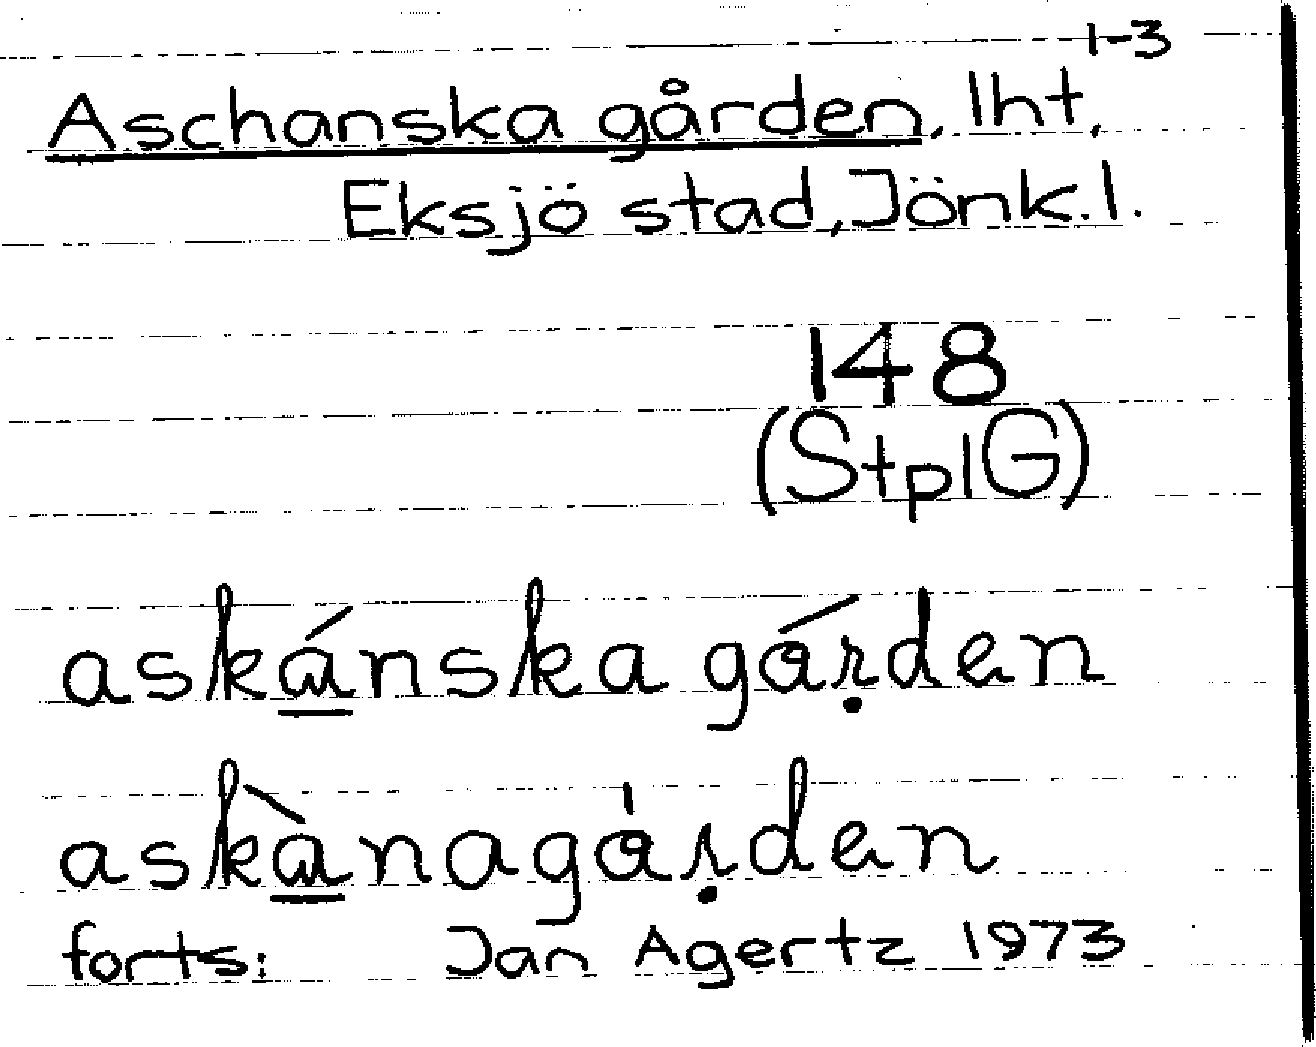 1-3
Aschanska gården, lht,
Eksjö stad, Jönk.l.
148
(StplG)
askánska gárden
askànagȧrden
forts: Jan Agertz 1973